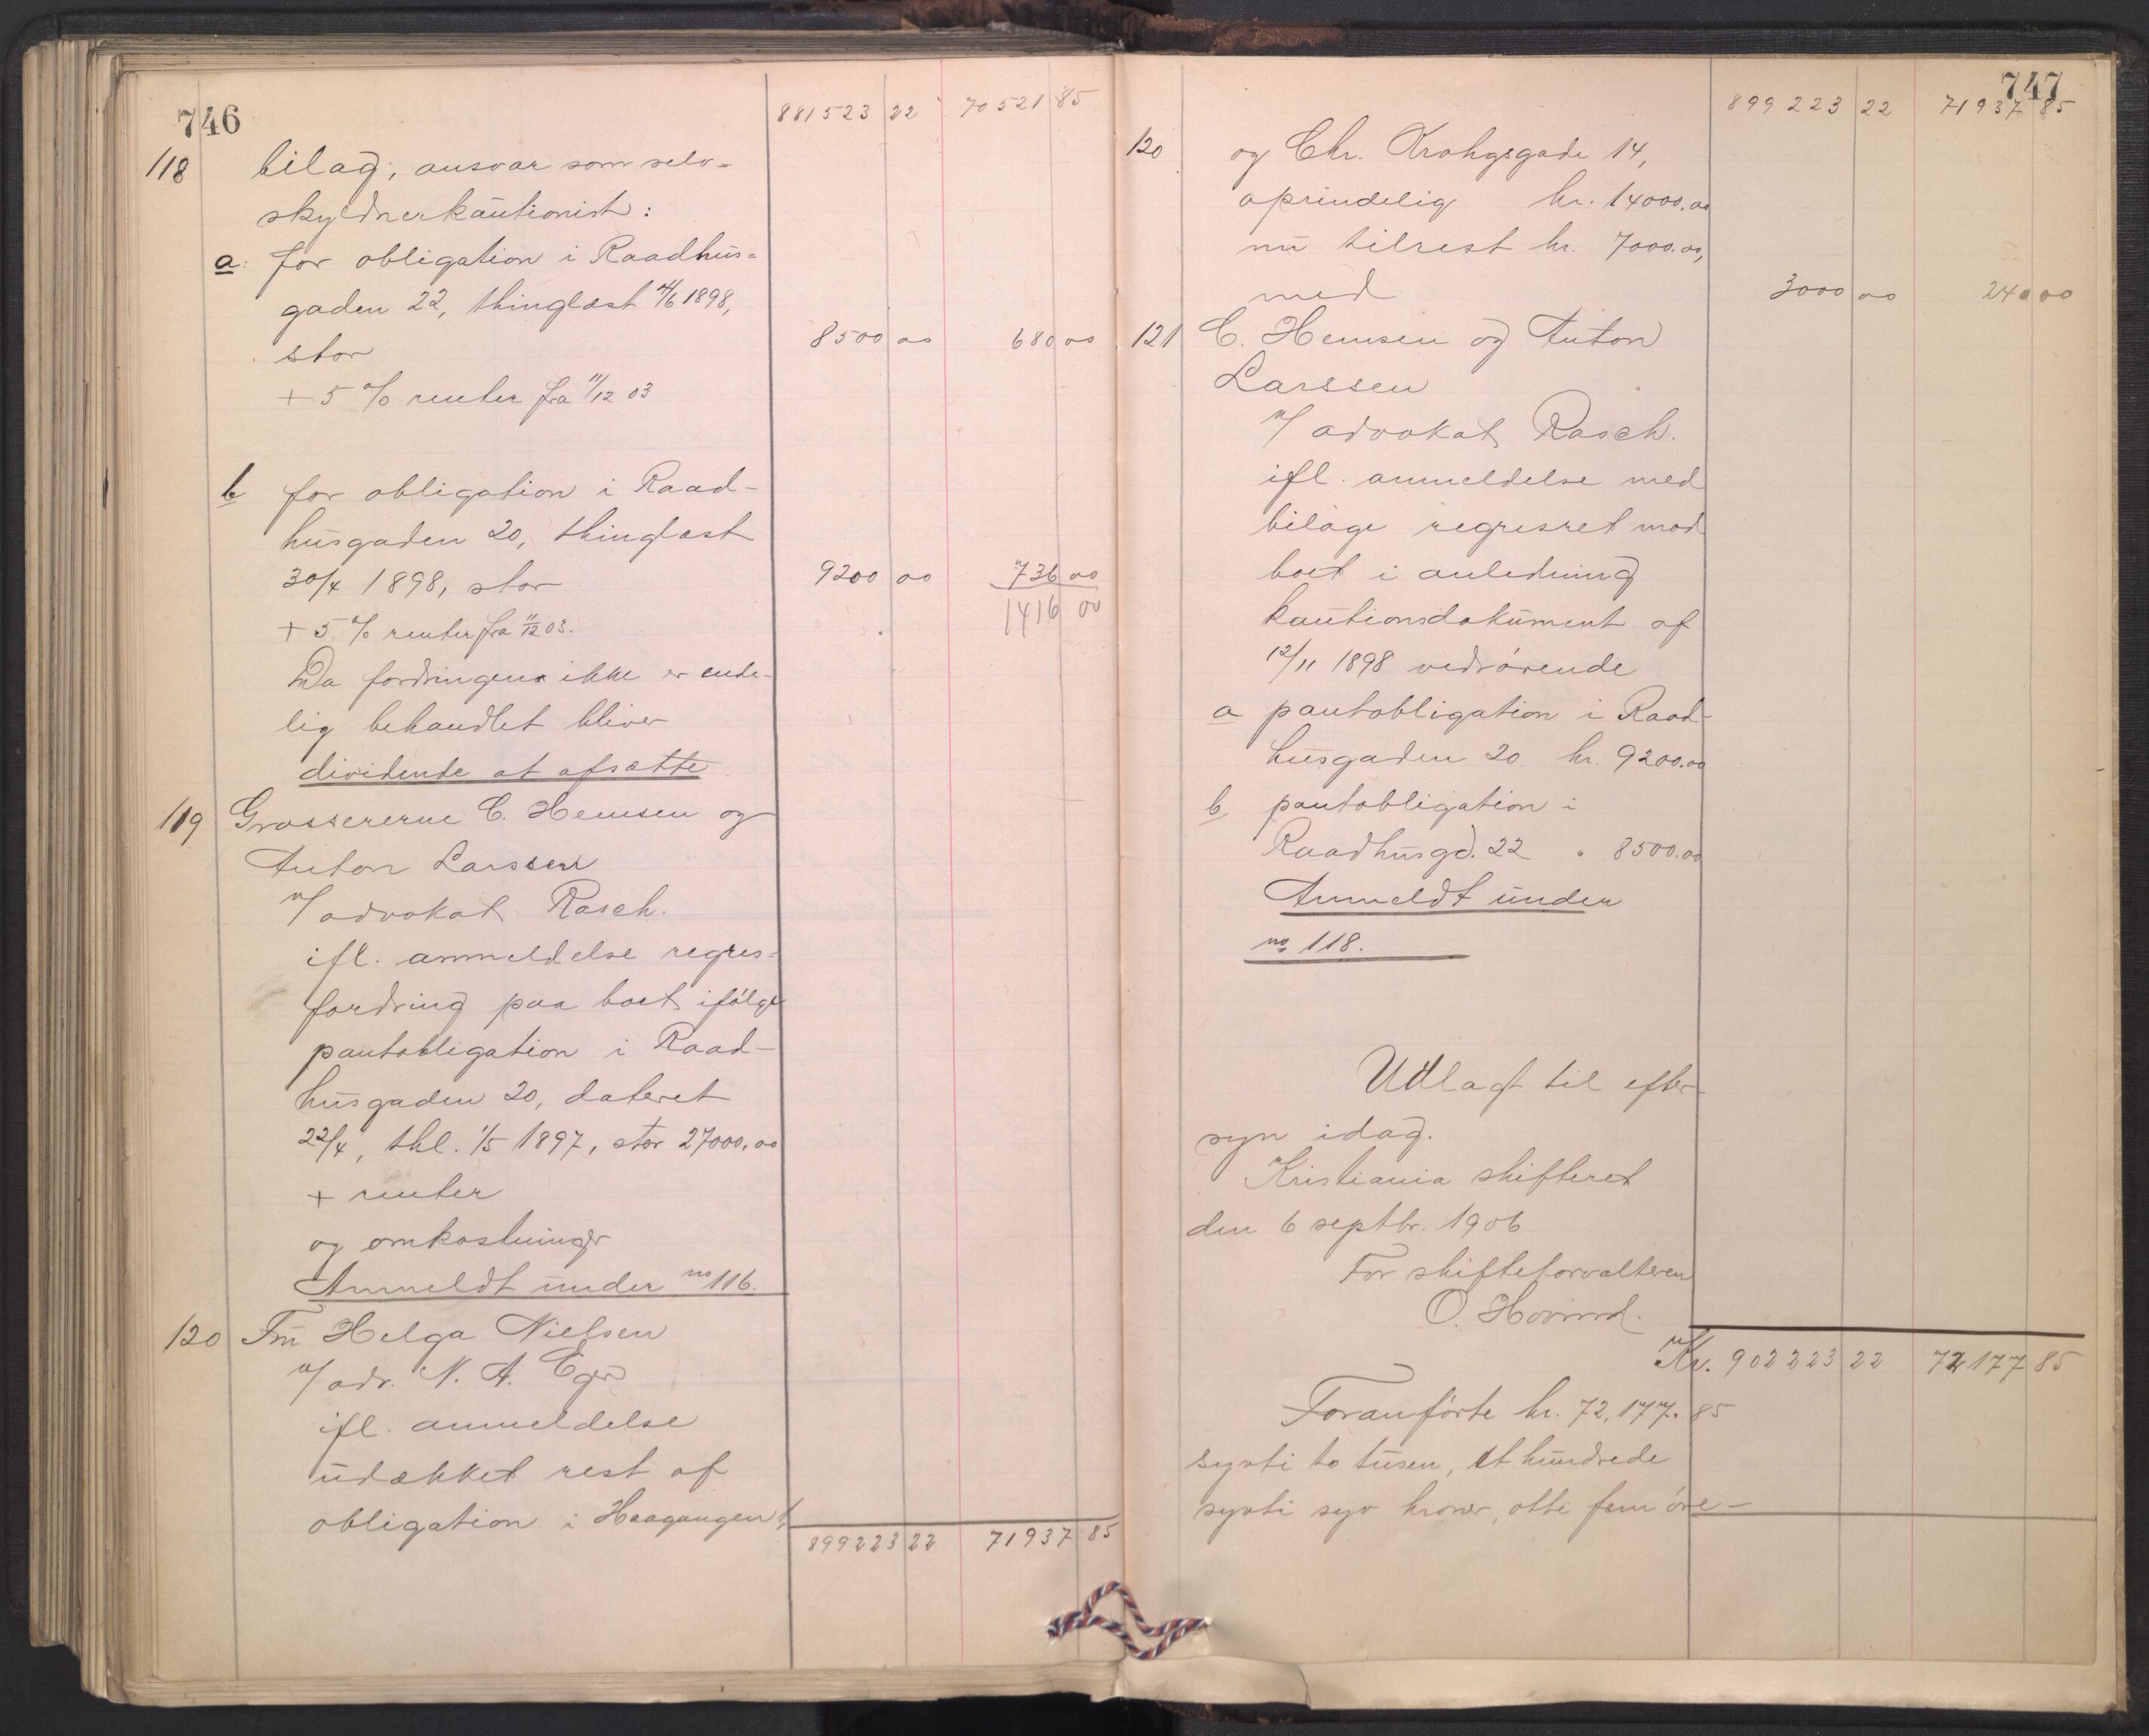 746
881523 22 70521 85
118 bilag, ansvar som selv-
skyldnerkautionist:
a: for obligation i Raadhus-
gaden 22, thinglæst 4/6 1898,
stor 8500 00 680 00
+ 5 % renter fra 11/12 03
b for obligation i Raad-
husgaden 20, thinglæst
30/4 1898, stor 9200 00 736 00
1416 00
+ 5 % renter fra 11/12 03.
Da fordringen ikke er ende-
lig behandlet bliver
dividende at afsætte
119 Grossererne C. Hemsen og
Anton Larssen
v/ advokat Rasch.
ifl. anmeldelse regres-
fordring paa boet ifølge
pantobligation i Raad-
husgaden 20, dateret
22/4, thl. 1/5 1897, stor 27000.00
+ renter
og omkostninger
Anmeldt under no 116.
120 Fru Helga Nielsen
v/ adv. N. A. Eger
ifl. anmeldelse
udækket rest af
obligation i Haagangen 1,
899223 22 71937 85
747
899223 22 71937 85
120 og Chr. Krohgsgade 14,
oprindelig kr. 14000.00
nu tilrest kr. 7000.00,
med 3000 00 240 00
121 C. Hemsen og Anton
Larssen
v/ advokat Rasch.
ifl. anmeldelse med
bilage regresret mod
boet i anledning
kautionsdokument af
12/11 1898 vedrørende
a pantobligation i Raad-
husgaden 20 kr. 9200.00
b pantobligation i
Raadhusgd. 22 " 8500.00
Anmeldt under
no 118.
Udlagt til efter-
syn idag.
Kristiania skifteret
den 6 septbr. 1906
For skifteforvalteren
Kr. 902223 22 72177 85
Foranførte kr. 72,177.85
sytti to tusen, et hundrede
sytti syv kroner, otti fem øre —